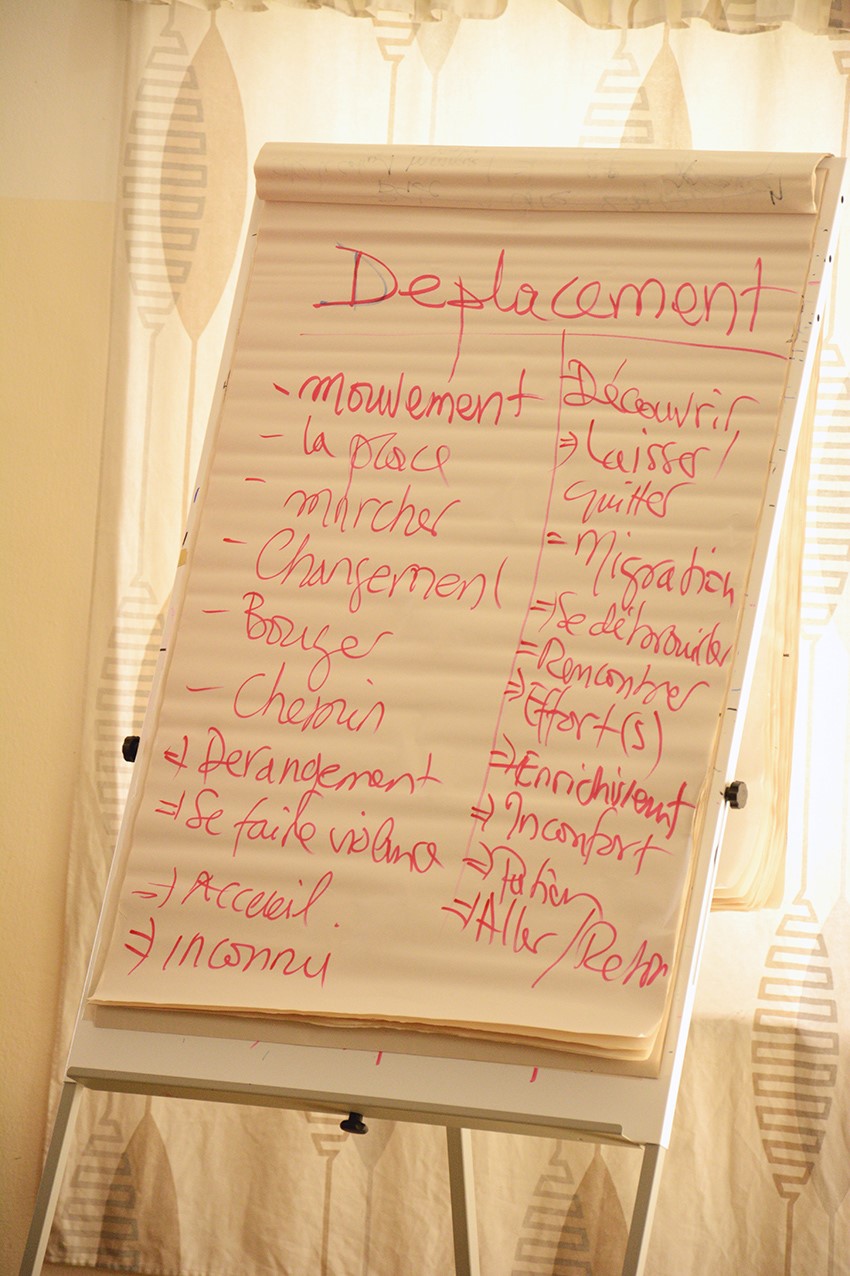 Deplacement
- mouvement
- la place
- marcher
- Changement
- Bouger
- Chemin
⇒ Derangement
⇒ Se faire violence
⇒ Accueil.
⇒ inconnu
Découvrir
⇒ Laisser /
quitter
= Migration
⇒ Se débrouiller
= Rencontrer
⇒ Effort(s)
⇒ Enrichissent
⇒ Inconfort
⇒
⇒ Aller / Retour